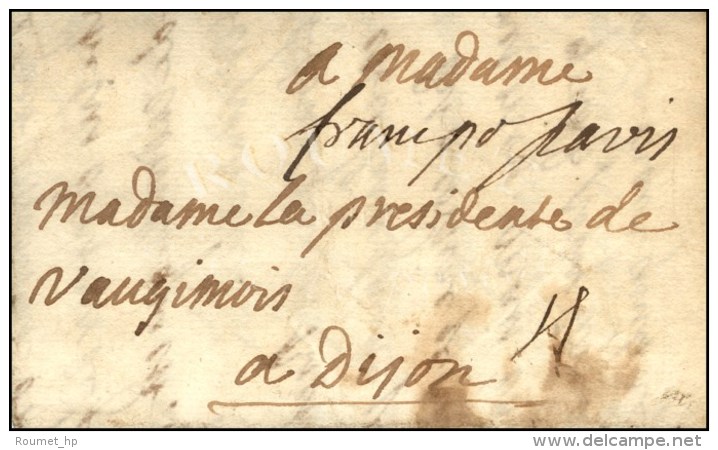 a Madame
franc po paris
Madame la presidente de
Vaugimois
a Dijon
Roumet_hp
delcampe.net